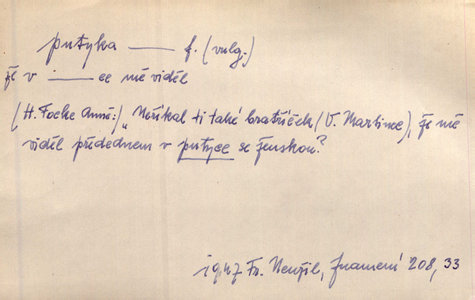 putyka —— f. (vulg.)
že v ——ce mě viděl
(H. Focke Anně:) „Neříkal ti také bratříček (V. Martinec), že mě
viděl předednem v putyce se ženskou?
1947 Fr. Neužil, Znamení 208, 33